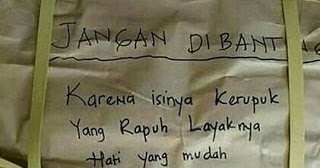 JANGAN DIBANTING
Karena isinya Kerupuk
Yang Rapuh Layaknya
Hati yang mudah